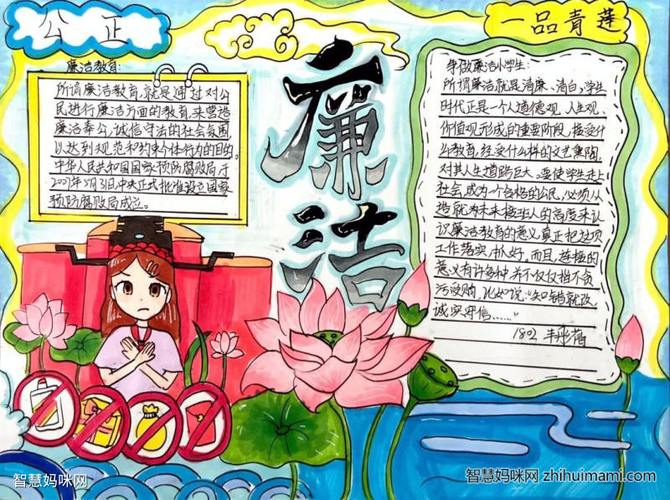 公正
一品青莲
廉洁
廉洁教育:
所谓廉洁教育,就是通过对公
民进行廉洁方面的教育,来营造
廉洁奉公,诚信守法的社会氛围,
以达到规范和约束个体行为的目的。
中华人民共和国国家预防腐败局于
2007年5月31日中央正式批准设立国家
预防腐败局成立。
争做廉洁小学生:
所谓廉洁就是清廉、清白,学生
时代正是一个人道德观、人生观、
价值观形成的重要阶段,接受什
么教育,经受什么样的文艺熏陶,
对其人生道路巨大。要使学生走上
社会,成为一个合格的公民,必须从
造就为未来接班人的高度来认
识廉洁教育的意义,真正把这项
工作落实、抓好。而且,廉洁的
意义有许多种,并不仅仅指不贪
污受贿,比如说:“知错就改,
诚实守信……”
1802
智慧妈咪网
智慧妈咪网 zhihuimami.com